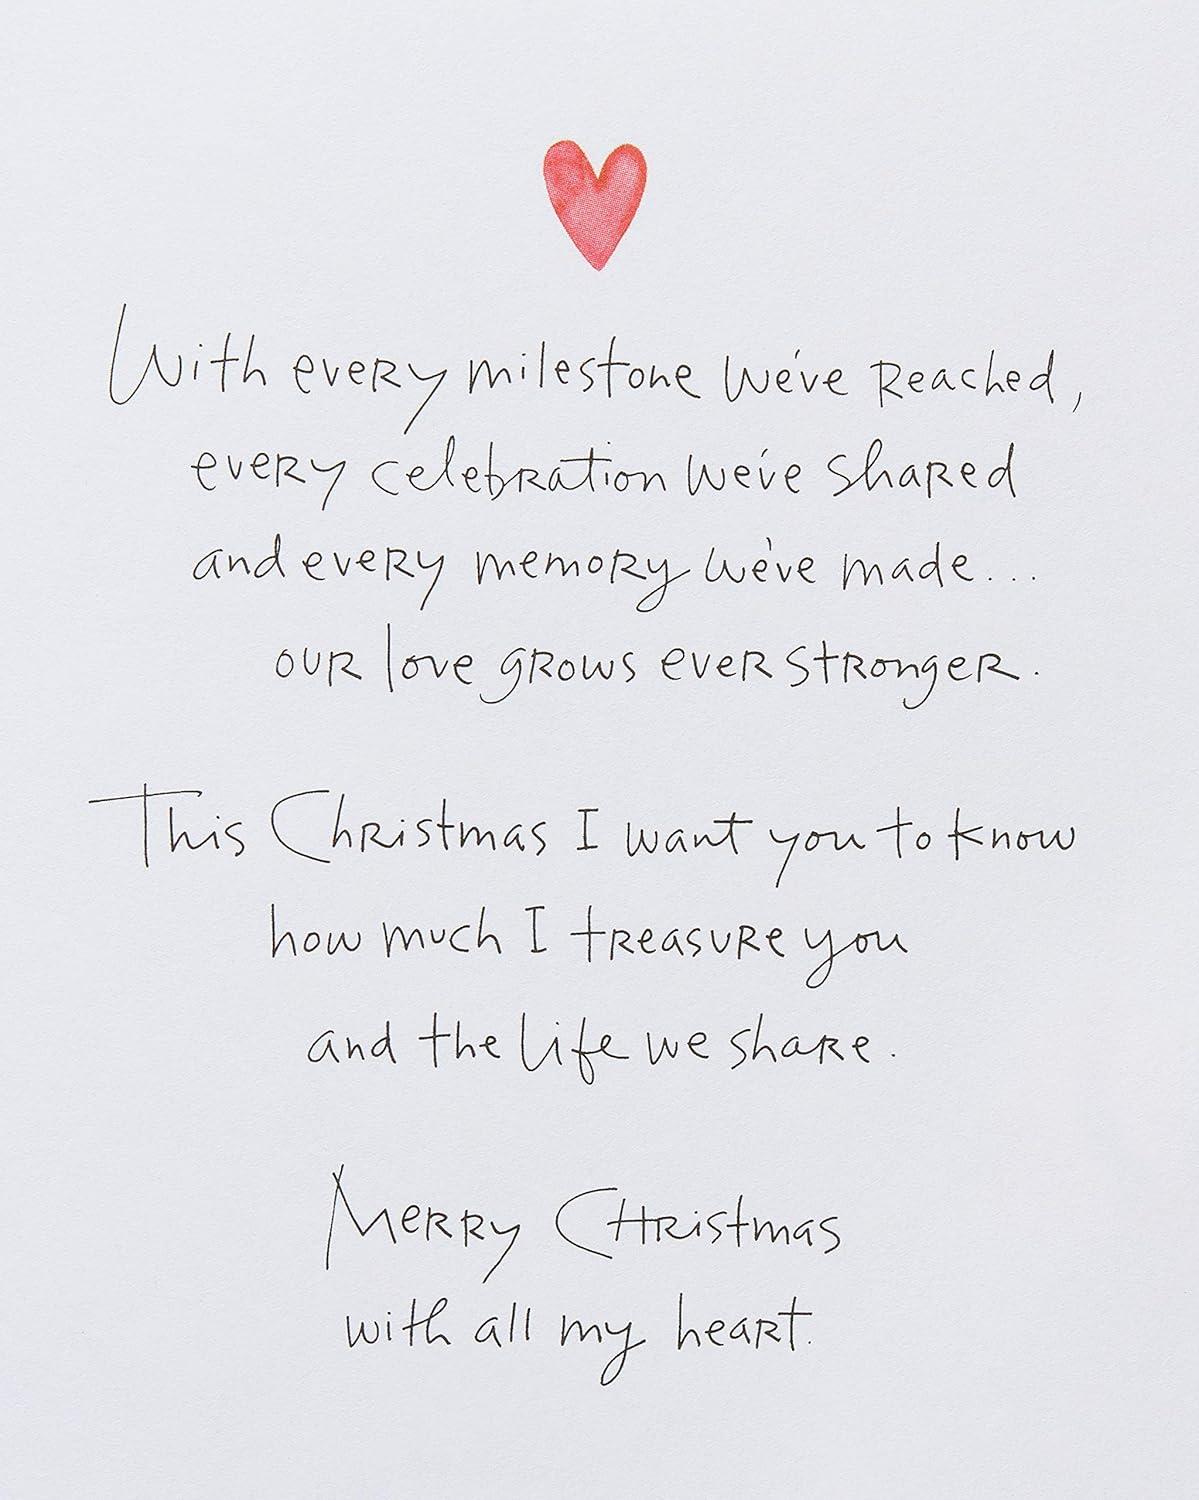 With every milestone we've reached,
every celebration we've shared
and every memory we've made...
our love grows ever stronger.
This Christmas I want you to know
how much I treasure you
and the life we share.
Merry Christmas
with all my heart.